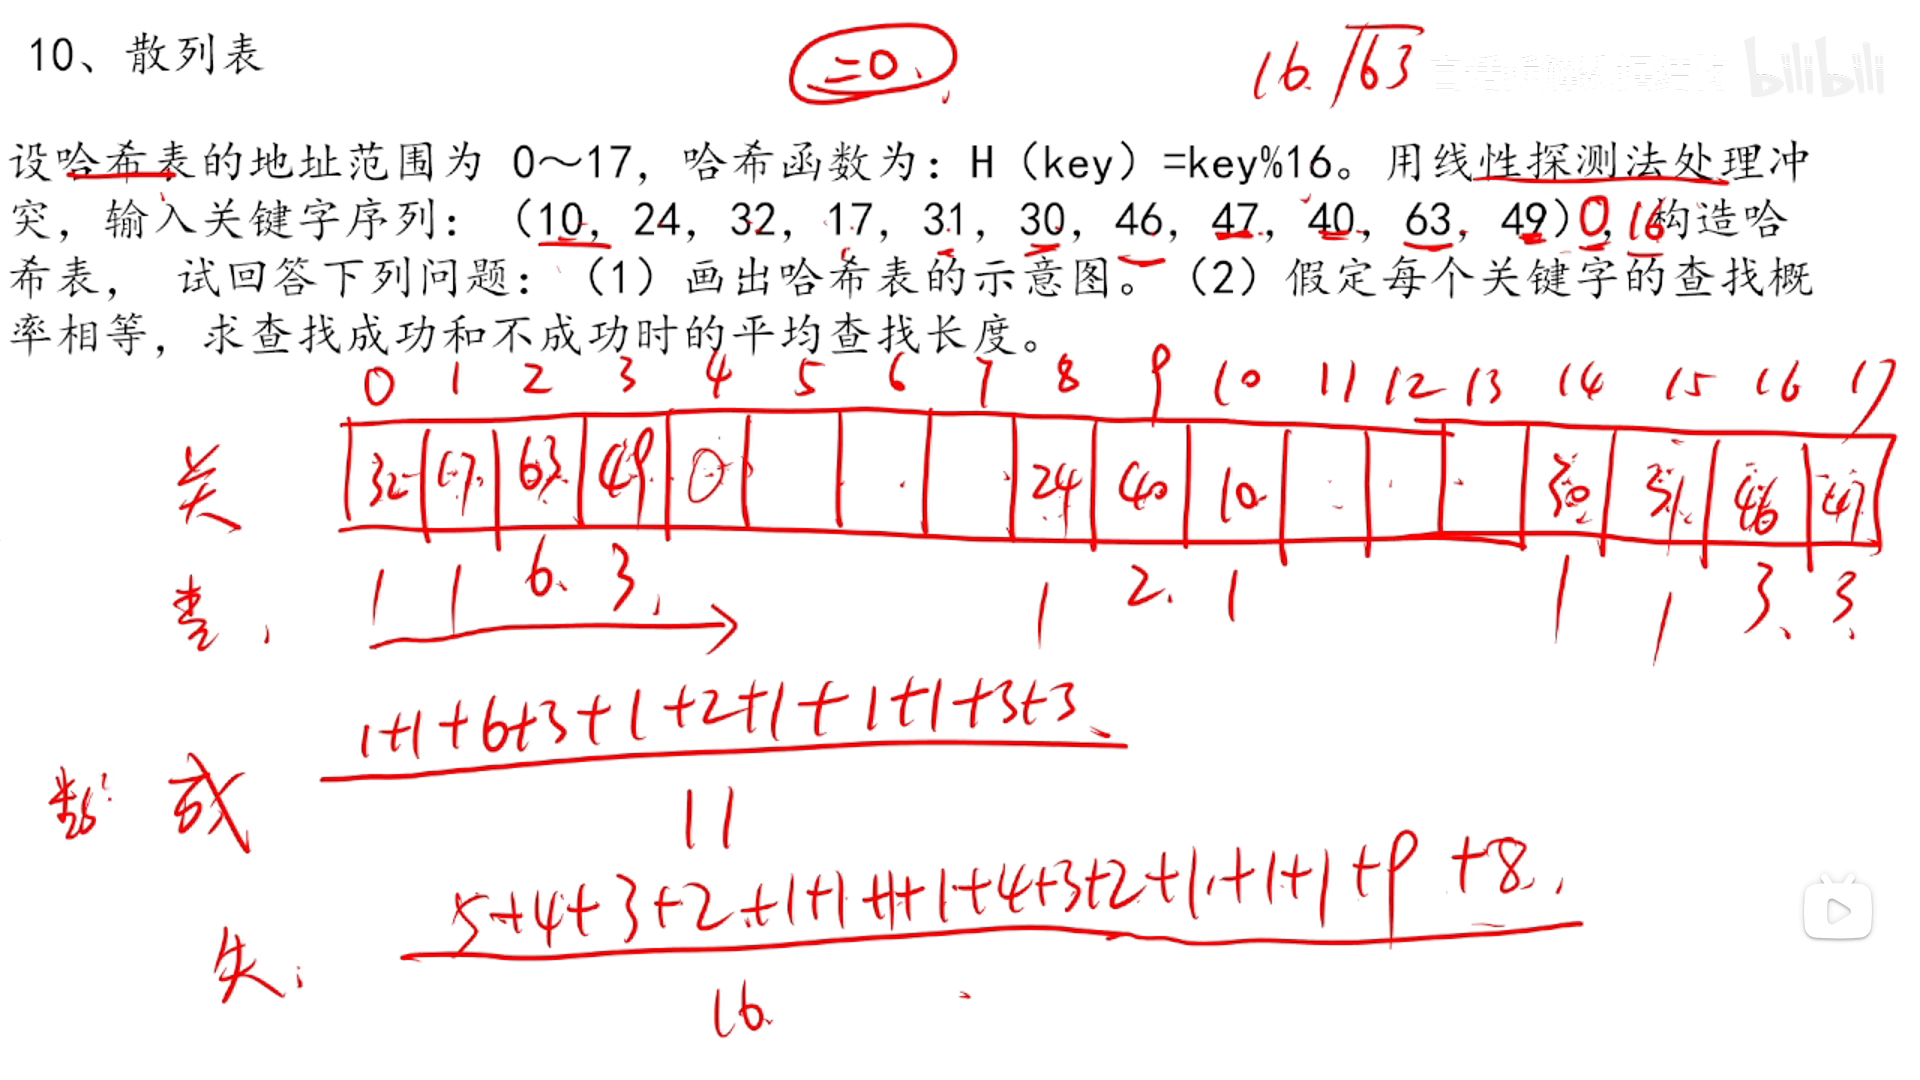 10、散列表
=0
16 63
bilibili
设哈希表的地址范围为 0～17，哈希函数为：H（key）=key%16。用线性探测法处理冲
突，输入关键字序列：（10，24，32，17，31，30，46，47，40，63，49）0，16构造哈
希表， 试回答下列问题：（1）画出哈希表的示意图。（2）假定每个关键字的查找概
率相等，求查找成功和不成功时的平均查找长度。
0 1 2 3 4 5 6 7 8 9 10 11 12 13 14 15 16 17
关 32 17 63 49 0 24 40 10 30 31 46 47
查 1 1 6 3 1 2 1 1 1 3 3
成 1+1+6+3+1+2+1+1+1+3+3
11
失: 5+4+3+2+1+1+1+1+4+3+2+1+1+1+9+8
16